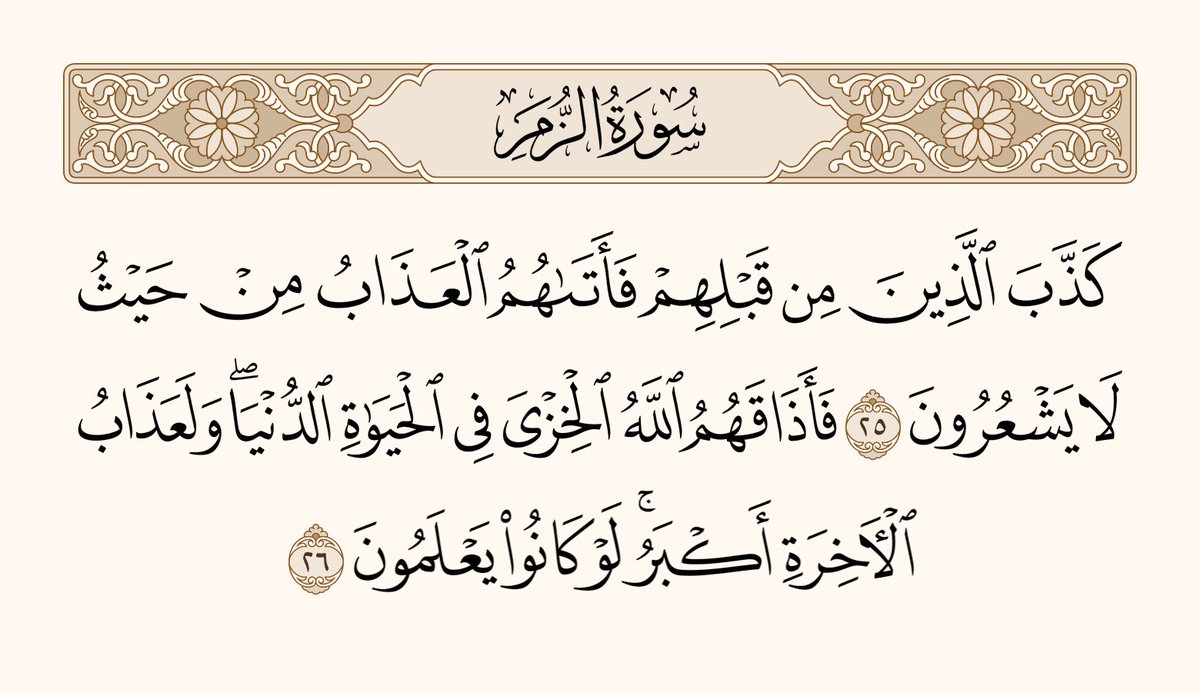 سُورَةُ الزُّمَرِ
كَذَّبَ ٱلَّذِينَ مِن قَبۡلِهِمۡ فَأَتَىٰهُمُ ٱلۡعَذَابُ مِنۡ حَيۡثُ
لَا يَشۡعُرُونَ ٢٥ فَأَذَاقَهُمُ ٱللَّهُ ٱلۡخِزۡيَ فِي ٱلۡحَيَوٰةِ ٱلدُّنۡيَاۖ وَلَعَذَابُ
ٱلۡأٓخِرَةِ أَكۡبَرُۚ لَوۡ كَانُواْ يَعۡلَمُونَ ٢٦